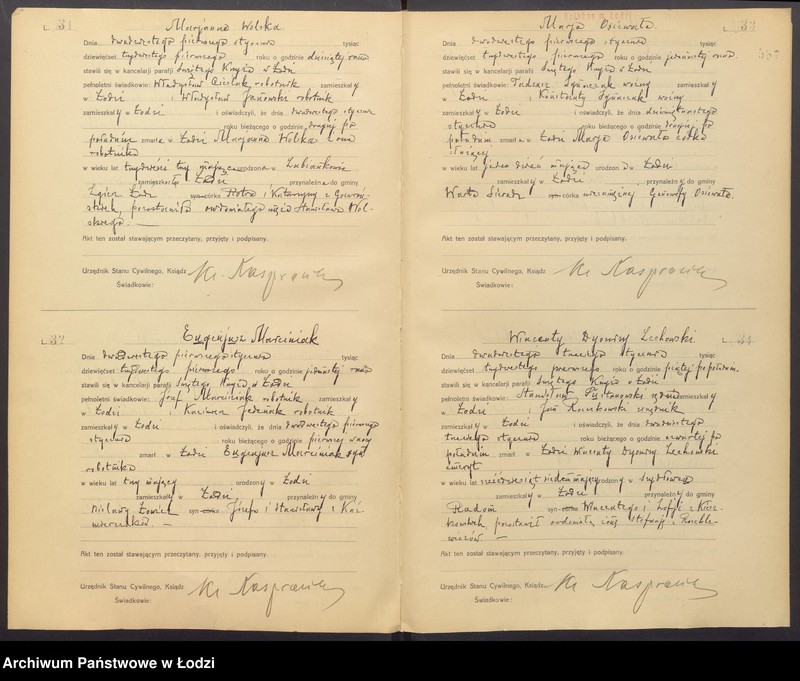 L. 31
Marjanna Wolska
Dnia dwudziestego pierwszego stycznia tysiąc
dziewięćset trzydziestego pierwszego roku o godzinie dziesiątej rano
stawili się w kancelarji parafji Świętego Krzyża w Łodzi
pełnoletni świadkowie: Władysław robotnik zamieszkały
w Łodzi i Władysław Janowski robotnik
zamieszkały w Łodzi i oświadczyli, że dnia dwudziestego stycznia
roku bieżącego o godzinie drugiej po
południu zmarła w Łodzi Marjanna Wolska żona
robotnika
w wieku lat trzydzieści trzy mająca urodzona w
zamieszkała w Łodzi przynależna do gminy
córka Piotra i Katarzyny z
pozostawiła owdowiałego męża Stanisława Wol-
skiego. —
Akt ten został stawającym przeczytany, przyjęty i podpisany.
Urzędnik Stanu Cywilnego, Ksiądz
Świadkowie:
L. 32
Eugenjusz Marciniak
Dnia dwudziestego pierwszego stycznia tysiąc
dziewięćset trzydziestego pierwszego roku o godzinie jedenastej rano
stawili się w kancelarji parafji Świętego Krzyża w Łodzi
pełnoletni świadkowie: Józef Marciniak robotnik zamieszkały
w Łodzi i Kazimierz robotnik
zamieszkały w Łodzi i oświadczyli, że dnia dwudziestego pierwszego
stycznia roku bieżącego o godzinie pierwszej w nocy
zmarł w Łodzi Eugenjusz Marciniak syn
robotnika
w wieku lat trzy mający urodzony w Łodzi
zamieszkały w Łodzi przynależny do gminy
Bielawy Łowicz syn córka Józefa i Stanisławy z Kaź-
mierczaków —
Akt ten został stawającym przeczytany, przyjęty i podpisany.
Urzędnik Stanu Cywilnego, Ksiądz
Świadkowie:
L. 33
Marja Osiewała.
Dnia dwudziestego pierwszego stycznia tysiąc
dziewięćset trzydziestego pierwszego roku o godzinie jedenastej rano
stawili się w kancelarji parafji Świętego Krzyża w Łodzi
pełnoletni świadkowie: Tadeusz woźny zamieszkały
w Łodzi i Konstanty woźny
zamieszkały w Łodzi i oświadczyli, że dnia dziewiętnastego
stycznia roku bieżącego o godzinie drugiej po
południu zmarła w Łodzi Marja Osiewała córka
służącej
w wieku lat jeden dzień mająca urodzona w Łodzi
zamieszkała w Łodzi przynależna do gminy
Warta Sieradz córka niezamężnej Genowefy Osiewała.
Akt ten został stawającym przeczytany, przyjęty i podpisany.
Urzędnik Stanu Cywilnego, Ksiądz
Świadkowie:
L. 34
Wincenty Dyonizy Lechowski
Dnia dwudziestego trzeciego stycznia tysiąc
dziewięćset trzydziestego pierwszego roku o godzinie piątej po południu.
stawili się w kancelarji parafji Świętego Krzyża w Łodzi
pełnoletni świadkowie: Stanisław zamieszkały
w Łodzi i Jan urzędnik
zamieszkały w Łodzi i oświadczyli, że dnia dwudziestego
trzeciego stycznia roku bieżącego o godzinie czwartej po
południu zmarł w Łodzi Wincenty Dyonizy Lechowski
emeryt
w wieku lat sześćdziesiąt siedem mający urodzony w
zamieszkały w Łodzi przynależny do gminy
Radom syn córka Wincentego i Zofji z
pozostawił owdowiałą żonę Stefanję z
—
Akt ten został stawającym przeczytany, przyjęty i podpisany.
Urzędnik Stanu Cywilnego, Ksiądz
Świadkowie:
Archiwum Państwowe w Łodzi